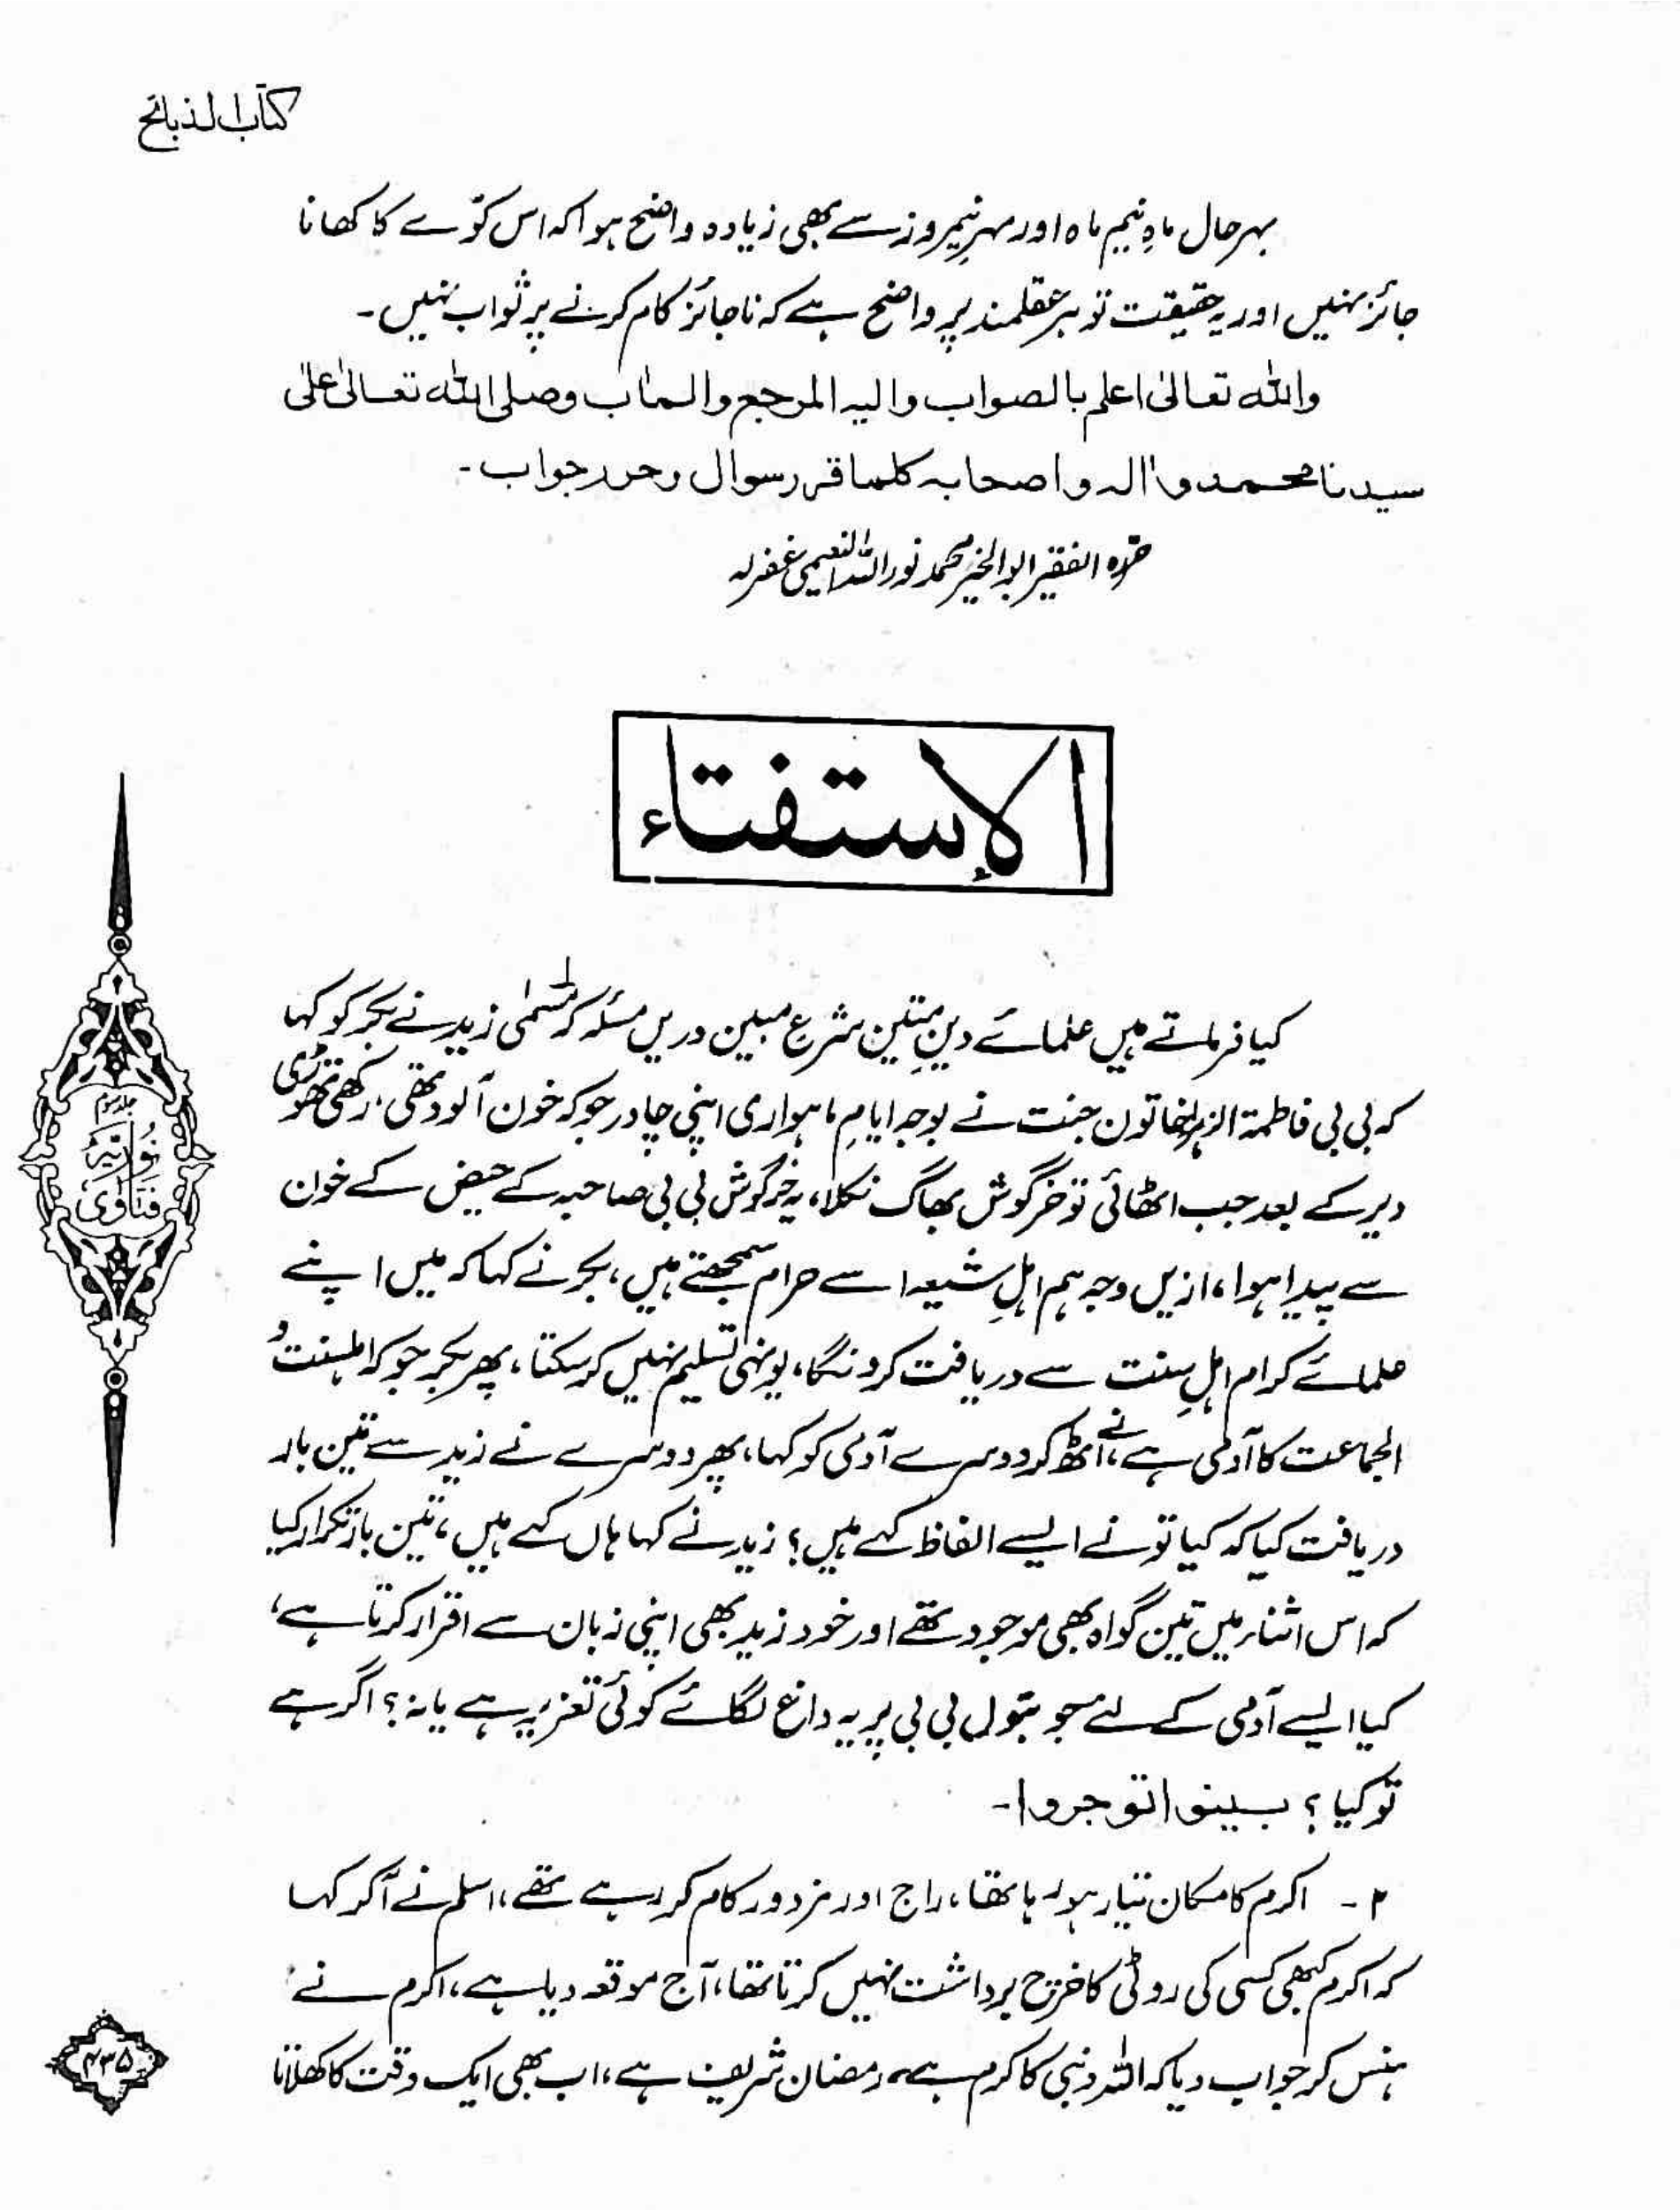 کتاب الذبائح
بہرحال ماہِ نیم ماہ اور مہرِ نیمروز سے بھی زیادہ واضح ہوا کہ اس کوّے کا کھانا
جائز نہیں اور یہ حقیقت تو ہر عقلمند پر واضح ہے کہ ناجائز کام کرنے پر ثواب نہیں۔
واللہ تعالیٰ اعلم بالصواب والیہ المرجع والمآب وصلی اللہ تعالیٰ علیٰ
سیدنا محمد واٰلہ واصحابہ کلما قرر سوال وحرر جواب۔
حرّرہ الفقیر ابوالخیر محمد نوراللہ النعیمی غفرلہ
الاستفتاء
کیا فرماتے ہیں علمائے دینِ متین شرع مبین دریں مسئلہ کہ مسمّٰی زید نے بکر کو کہا
کہ بی بی فاطمۃ الزہرا خاتون جنت نے بوجہ ایامِ ماہواری اپنی چادر جو کہ خون آلود تھی، رکھی تھوڑی
دیر کے بعد جب اٹھائی تو خرگوش بھاگ نکلا، یہ خرگوش بی بی صاحبہ کے حیض کے خون
سے پیدا ہوا، ازیں وجہ ہم اہلِ شیعہ اسے حرام سمجھتے ہیں، بکر نے کہا کہ میں اپنے
علمائے کرام اہلِ سنت سے دریافت کرونگا، یونہی تسلیم نہیں کر سکتا، پھر بکر جو کہ اہلسنت و
الجماعت کا آدمی ہے، نے اٹھ کر دوسرے آدمی کو کہا، پھر دوسرے نے زید سے تین بار
دریافت کیا کہ کیا تو نے ایسے الفاظ کہے ہیں؟ زید نے کہا ہاں کہے ہیں، تین بار تکرار کیا
کہ اس اثناء میں تین گواہ بھی موجود تھے اور خود زید بھی اپنی زبان سے اقرار کرتا ہے،
کیا ایسے آدمی کے لئے جو بتول بی بی پر یہ داغ لگائے کوئی تعزیر ہے یا نہ؟ اگر ہے
تو کیا؟ بینوا توجروا۔
۲۔ اکرم کا مکان تیار ہو رہا تھا، راج اور مزدور کام کر رہے تھے، اسلم نے آکر کہا
کہ اکرم کبھی کسی کی روٹی کا خرچ برداشت نہیں کرتا تھا، آج موقعہ دیا ہے، اکرم نے
ہنس کر جواب دیا کہ اللہ و نبی کا کرم ہے، رمضان شریف ہے، اب بھی ایک وقت کا کھلاتا
جلد سوم
نوریّہ
فتاوٰی
۴۳۵